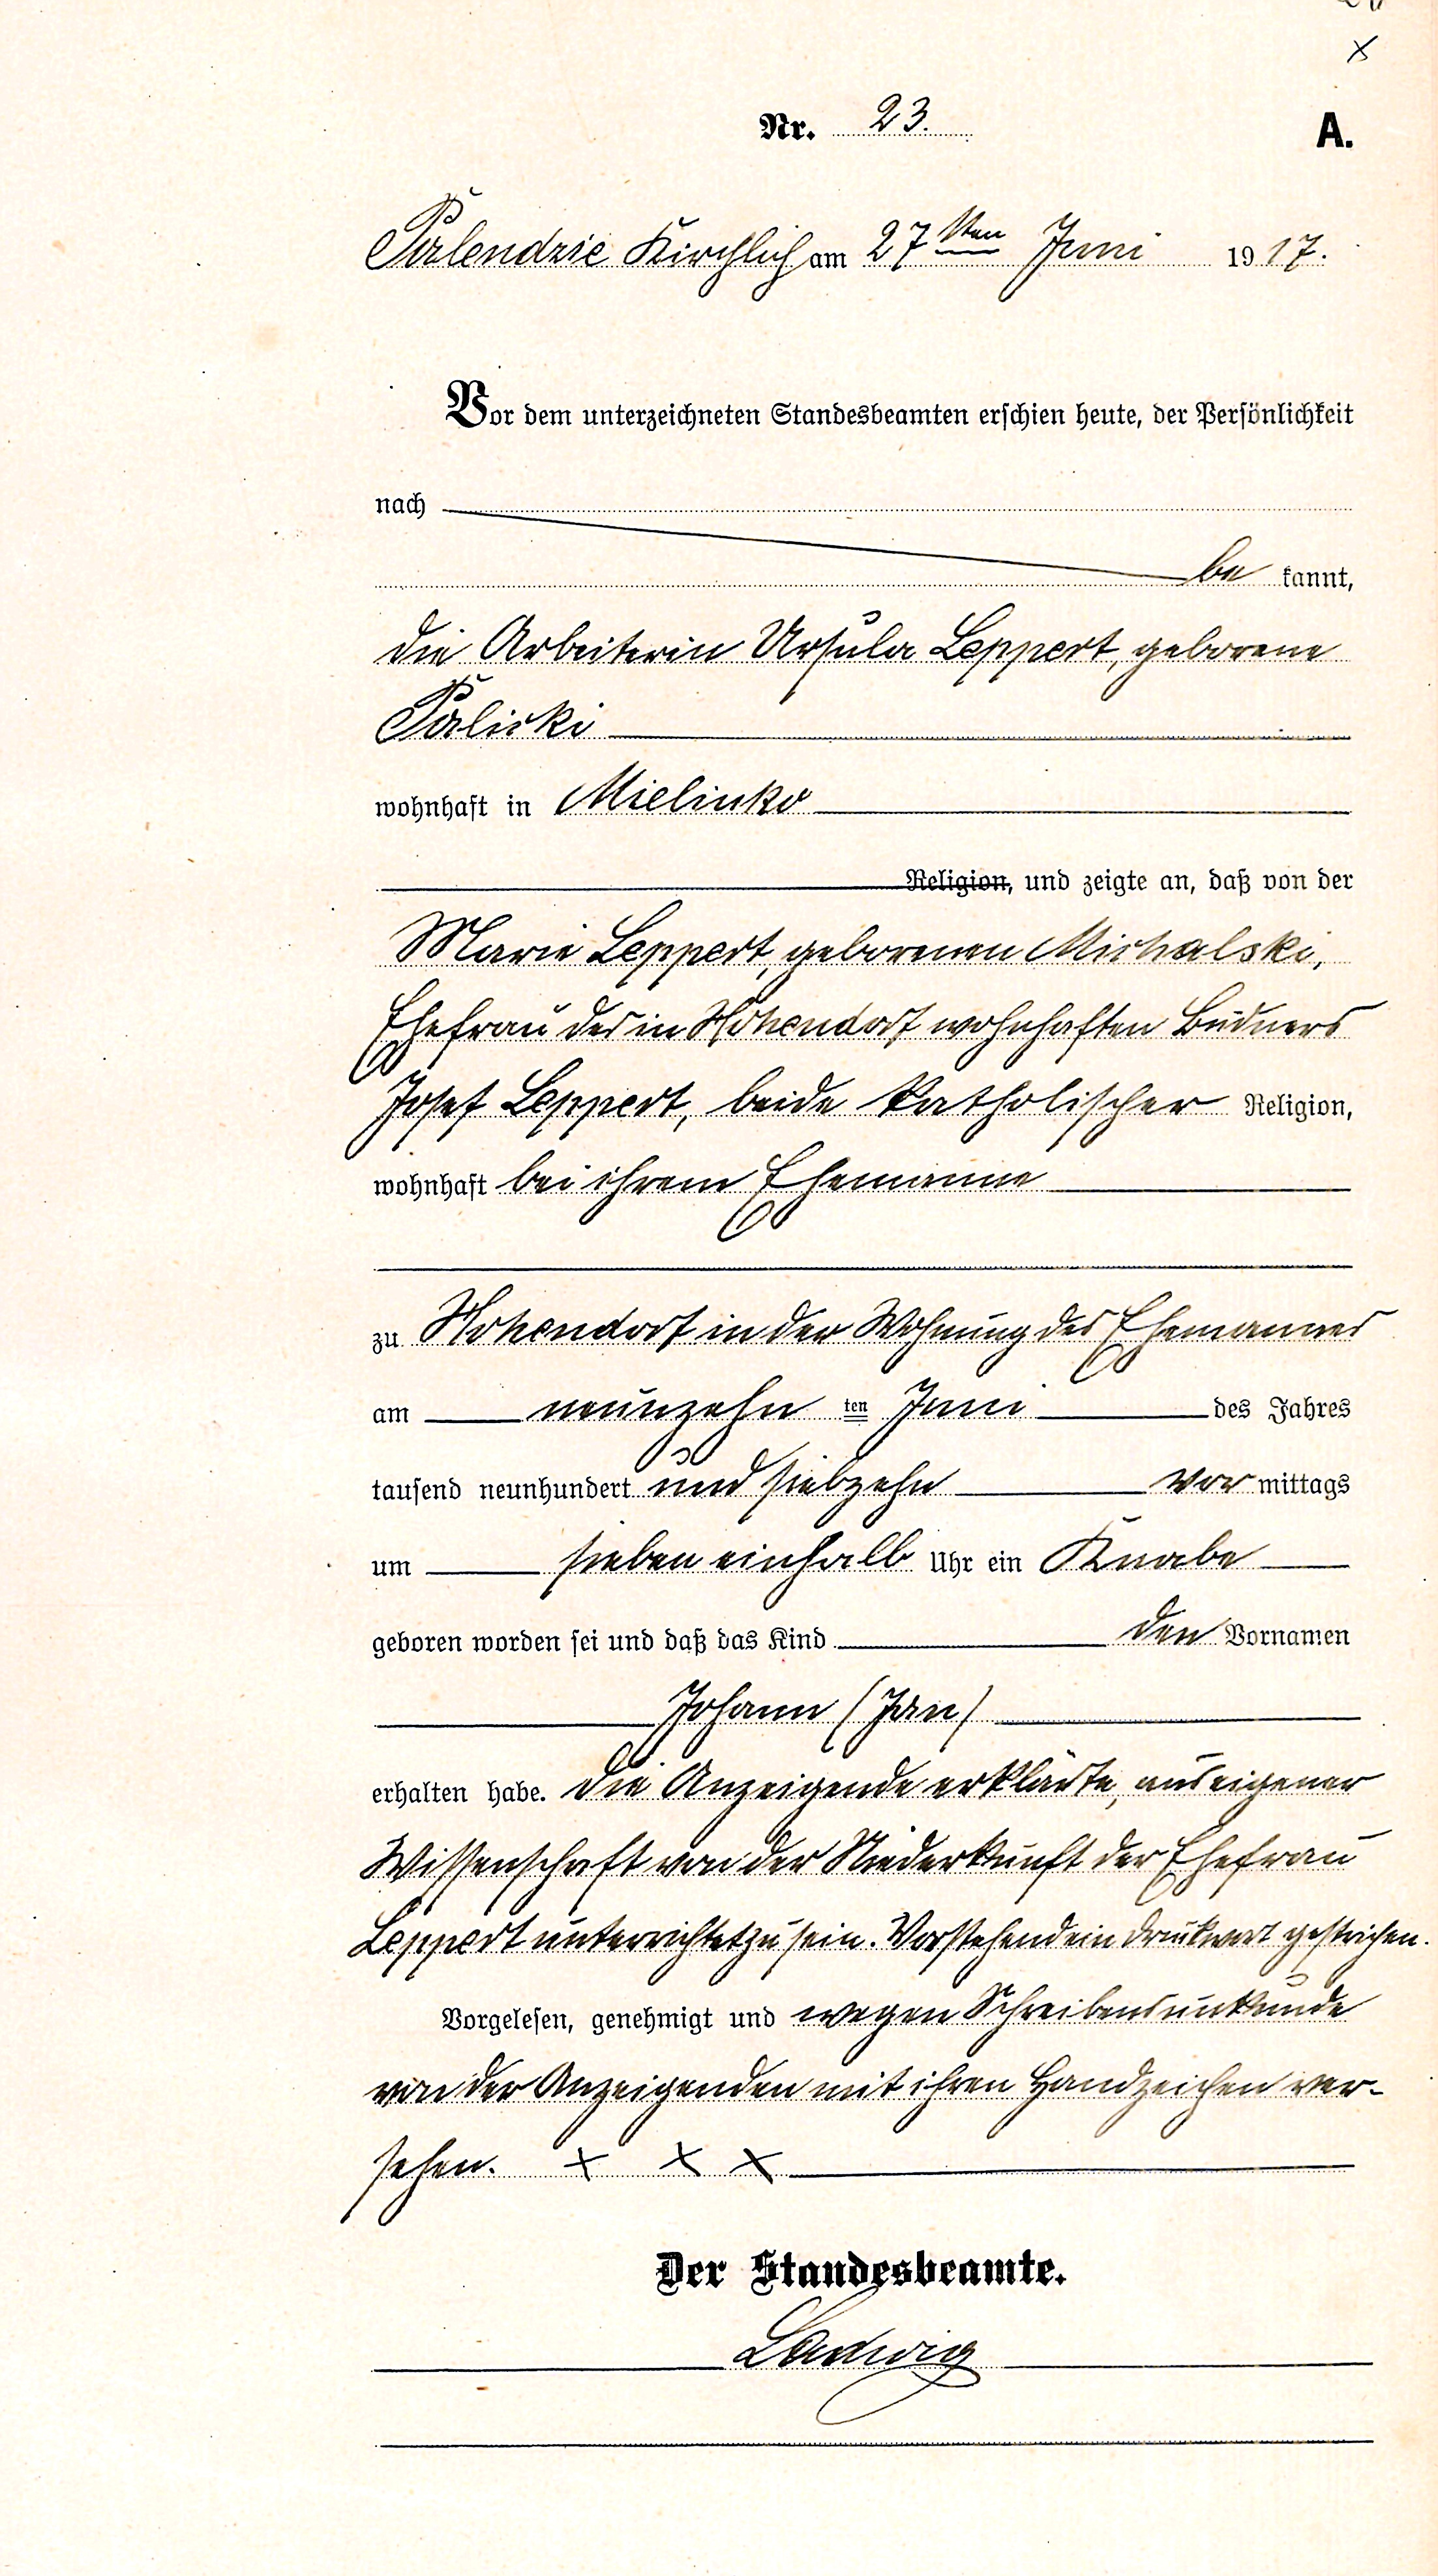 Nr. 23. A.
Palendzie Kirchlich am 27ten Juni 1917.
Vor dem unterzeichneten Standesbeamten erschien heute, der Persönlichkeit
nach
be kannt,
die Arbeiterin Ursula Leppert, geborene
Palicki
wohnhaft in Mielinko
Religion, und zeigte an, daß von der
Marie Leppert, geborenen Michalski,
Ehefrau des in Hohendorf wohnhaften Büdners
Josef Leppert, beide katholischer Religion,
wohnhaft bei ihrem Ehemanne
zu Hohendorf in der Wohnung des Ehemannes
am neunzehn ten Juni des Jahres
tausend neunhundert und siebzehn vor mittags
um sieben einhalb Uhr ein Knabe
geboren worden sei und daß das Kind den Vornamen
Johann (Jan)
erhalten habe. Die Anzeigende erklärte, aus eigener
Wissenschaft von der Niederkunft der Ehefrau
Leppert unterrichtet zu sein. Vorstehend ein Druckwort gestrichen.
Vorgelesen, genehmigt und wegen Schreibensunkunde
von der Anzeigenden mit ihren Handzeichen ver-
sehen. + + +
Der Standesbeamte.
Ladwig